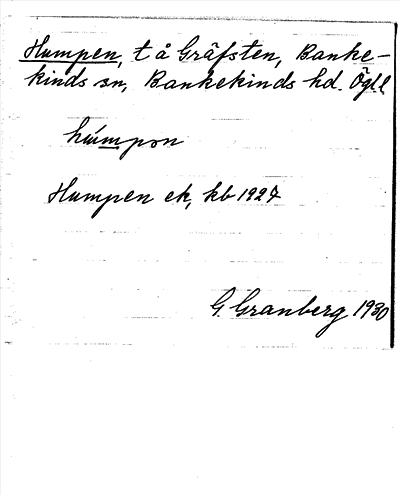 Humpen, t å Gräfsten, Banke-
kinds sn, Bankekinds hd. Ögtl
húmpon
Humpen ek, kb 1927
G. Granberg 1930